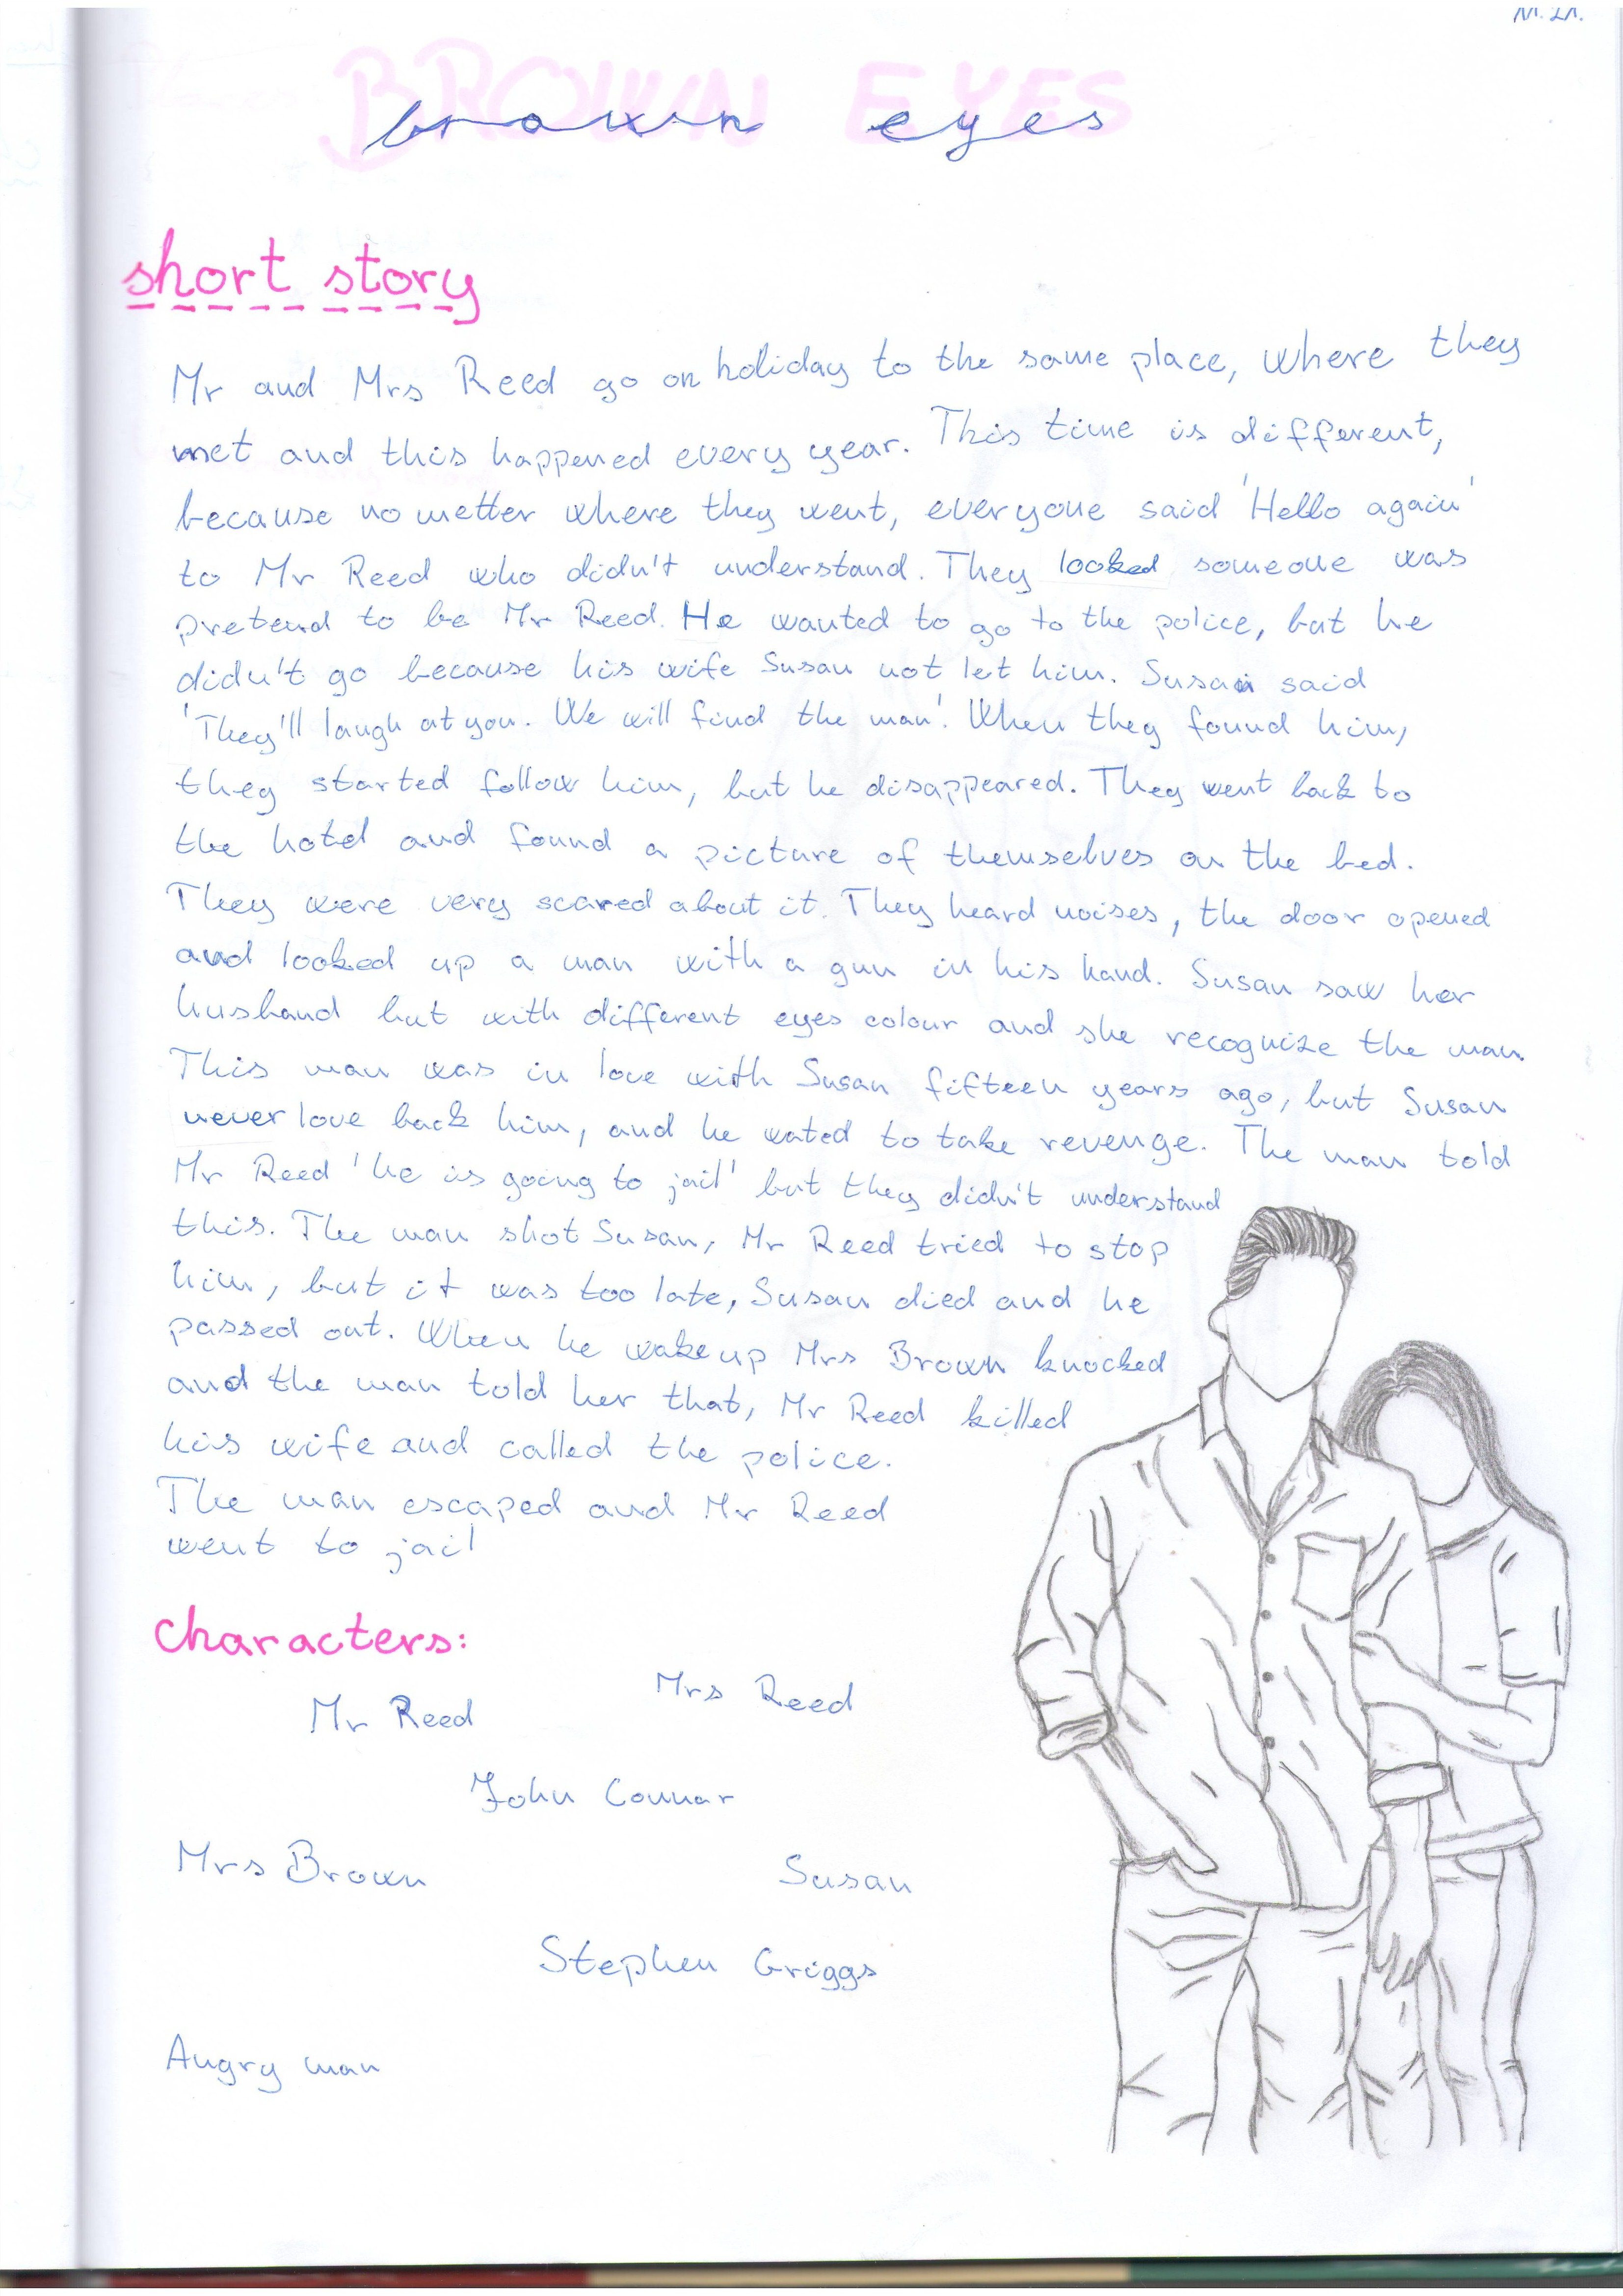 BROWN EYES
brown eyes
short story
Mr and Mrs Reed go on holiday to the same place, where they
met and this happened every year. This time is different,
because no metter where they went, everyone said 'Hello again'
to Mr Reed who didn't understand. They looked someone was
pretend to be Mr Reed. He wanted to go to the police, but he
didn't go because his wife Susan not let him. Susan said
'They'll laugh at you. We will find the man'. When they found him,
they started follow him, but he disappeared. They went back to
the hotel and found a picture of themselves on the bed.
They were very scared about it. They heard noises, the door opened
and looked up a man with a gun in his hand. Susan saw her
husband but with different eyes colour and she recognize the man.
This man was in love with Susan fifteen years ago, but Susan
never love back him, and he wated to take revenge. The man told
Mr Reed 'he is going to jail' but they didn't understand
this. The man shot Susan, Mr Reed tried to stop
him, but it was too late, Susan died and he
passed out. When he wake up Mrs Brown knocked
and the man told her that, Mr Reed killed
his wife and called the police.
The man escaped and Mr Reed
went to jail
characters:
Mr Reed
Mrs Reed
John Connar
Mrs Brown
Susan
Stephen Griggs
Angry man